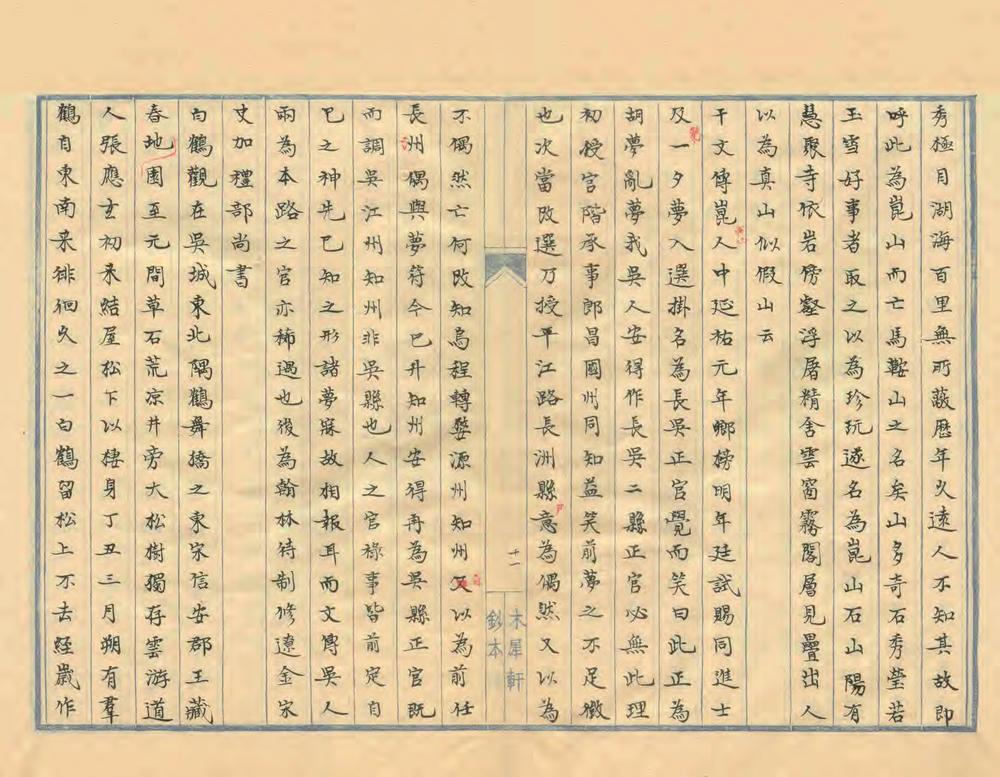 秀極目湖海百里無所蔽歷年久遠人不知其故即
呼此為崑山而亡馬鞍山之名矣山多奇石秀瑩若
玉雪好事者取之以為珍玩遂名為崑山石山陽有
慧聚寺依岩傍壑浮屠精舍雲窗霧閣層見疊出人
以為真山似假山云
干文傳崑人中延祐元年鄉榜明年廷試賜同進士
及一夕夢入選掛名為長吳正官覺而笑曰此正為
胡夢亂夢我吳人安得作長吳二縣正官必無此理
初授官階承事郎昌國州同知益笑前夢之不足徵
也次當改選乃授平江路長洲縣意為偶然又以為
十一
木犀軒
鈔本
不偶然亡何改知烏程轉婺源州知州又以為前任
長洲偶與夢符今已升知州安得再為吳縣正官既
而調吳江州知州非吳縣也人之官祿事皆前定自
已之神先已知之形諸夢寐故相報耳而文傳吳人
兩為本路之官亦稀遇也後為翰林待制修遼金宋
丈加禮部尚書
白鶴觀在吳城東北隅鶴舞橋之東宋信安郡王藏
春地園至元間草石荒凉井旁大松樹獨存雲游道
人張應玄初來結屋松下以棲身丁丑三月朔有羣
鶴自東南来徘徊久之一白鶴留松上不去經歲作